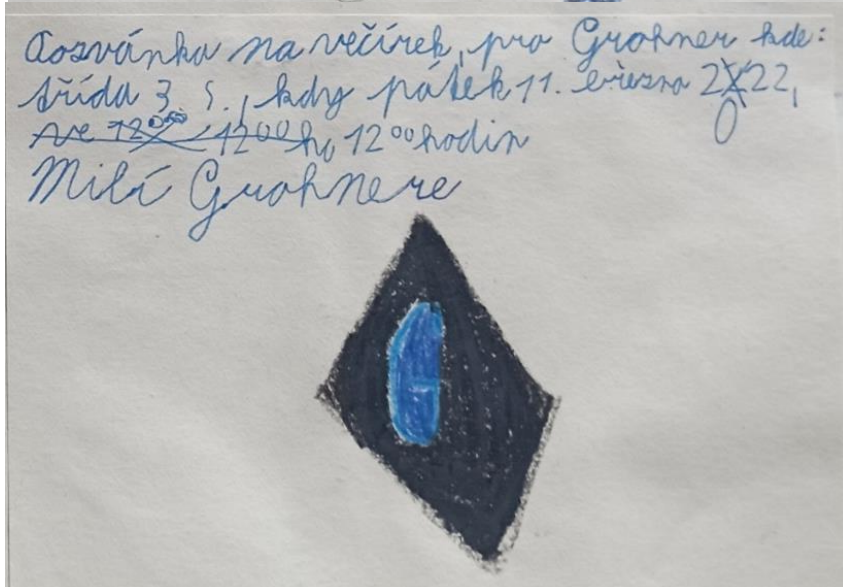 Pozvánka na večírek, pro Grohner kde:
třída 3. S., kdy pátek 11. března 2022,
ve 12 00 1200 h, 12 00 hodin
Milí Grohnere